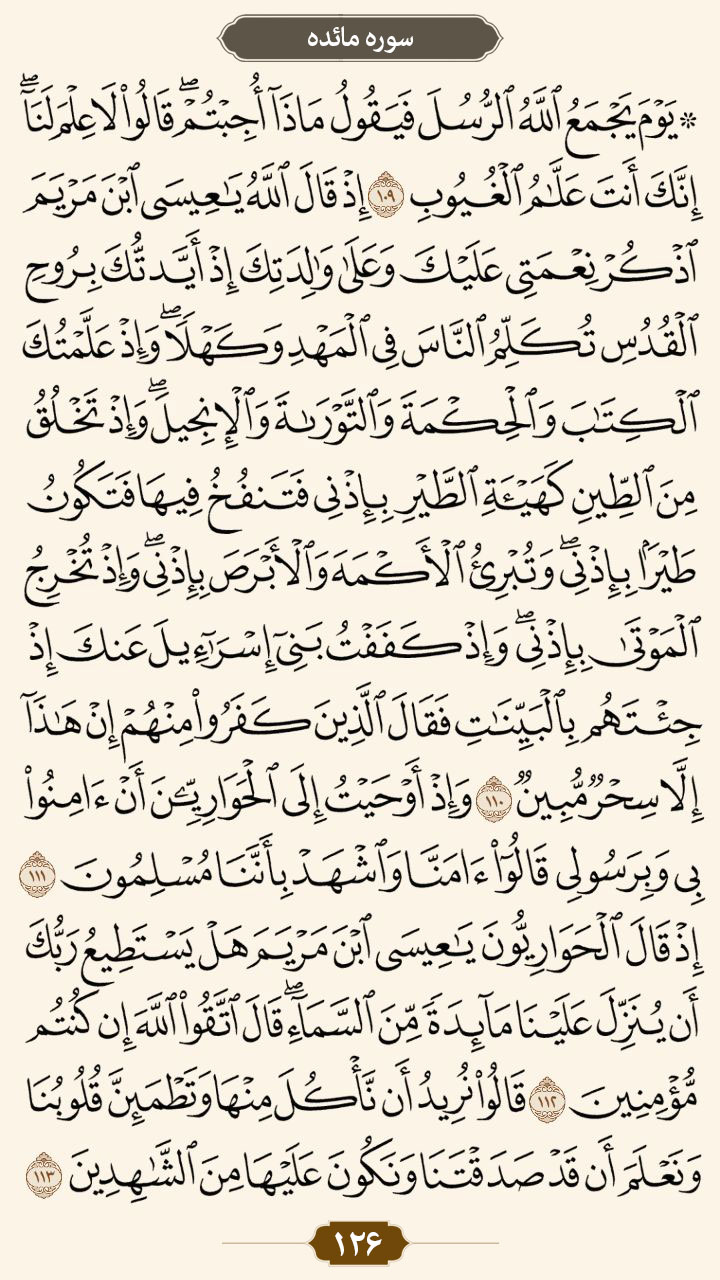 سوره مائده
۞ يَوْمَ يَجْمَعُ ٱللَّهُ ٱلرُّسُلَ فَيَقُولُ مَاذَآ أُجِبْتُمْۖ قَالُوا۟ لَا عِلْمَ لَنَآۖ
إِنَّكَ أَنتَ عَلَّـٰمُ ٱلْغُيُوبِ ١٠٩ إِذْ قَالَ ٱللَّهُ يَـٰعِيسَى ٱبْنَ مَرْيَمَ
ٱذْكُرْ نِعْمَتِى عَلَيْكَ وَعَلَىٰ وَٰلِدَتِكَ إِذْ أَيَّدتُّكَ بِرُوحِ
ٱلْقُدُسِ تُكَلِّمُ ٱلنَّاسَ فِى ٱلْمَهْدِ وَكَهْلًاۖ وَإِذْ عَلَّمْتُكَ
ٱلْكِتَـٰبَ وَٱلْحِكْمَةَ وَٱلتَّوْرَىٰةَ وَٱلْإِنجِيلَۖ وَإِذْ تَخْلُقُ
مِنَ ٱلطِّينِ كَهَيْـَٔةِ ٱلطَّيْرِ بِإِذْنِى فَتَنفُخُ فِيهَا فَتَكُونُ
طَيْرًۢا بِإِذْنِىۖ وَتُبْرِئُ ٱلْأَكْمَهَ وَٱلْأَبْرَصَ بِإِذْنِىۖ وَإِذْ تُخْرِجُ
ٱلْمَوْتَىٰ بِإِذْنِىۖ وَإِذْ كَفَفْتُ بَنِىٓ إِسْرَٰٓءِيلَ عَنكَ إِذْ
جِئْتَهُم بِٱلْبَيِّنَـٰتِ فَقَالَ ٱلَّذِينَ كَفَرُوا۟ مِنْهُمْ إِنْ هَـٰذَآ
إِلَّا سِحْرٌ مُّبِينٌ ١١٠ وَإِذْ أَوْحَيْتُ إِلَى ٱلْحَوَارِيِّـۧنَ أَنْ ءَامِنُوا۟
بِى وَبِرَسُولِى قَالُوٓا۟ ءَامَنَّا وَٱشْهَدْ بِأَنَّنَا مُسْلِمُونَ ١١١
إِذْ قَالَ ٱلْحَوَارِيُّونَ يَـٰعِيسَى ٱبْنَ مَرْيَمَ هَلْ يَسْتَطِيعُ رَبُّكَ
أَن يُنَزِّلَ عَلَيْنَا مَآئِدَةً مِّنَ ٱلسَّمَآءِۖ قَالَ ٱتَّقُوا۟ ٱللَّهَ إِن كُنتُم
مُّؤْمِنِينَ ١١٢ قَالُوا۟ نُرِيدُ أَن نَّأْكُلَ مِنْهَا وَتَطْمَئِنَّ قُلُوبُنَا
وَنَعْلَمَ أَن قَدْ صَدَقْتَنَا وَنَكُونَ عَلَيْهَا مِنَ ٱلشَّـٰهِدِينَ ١١٣
۱۲۶